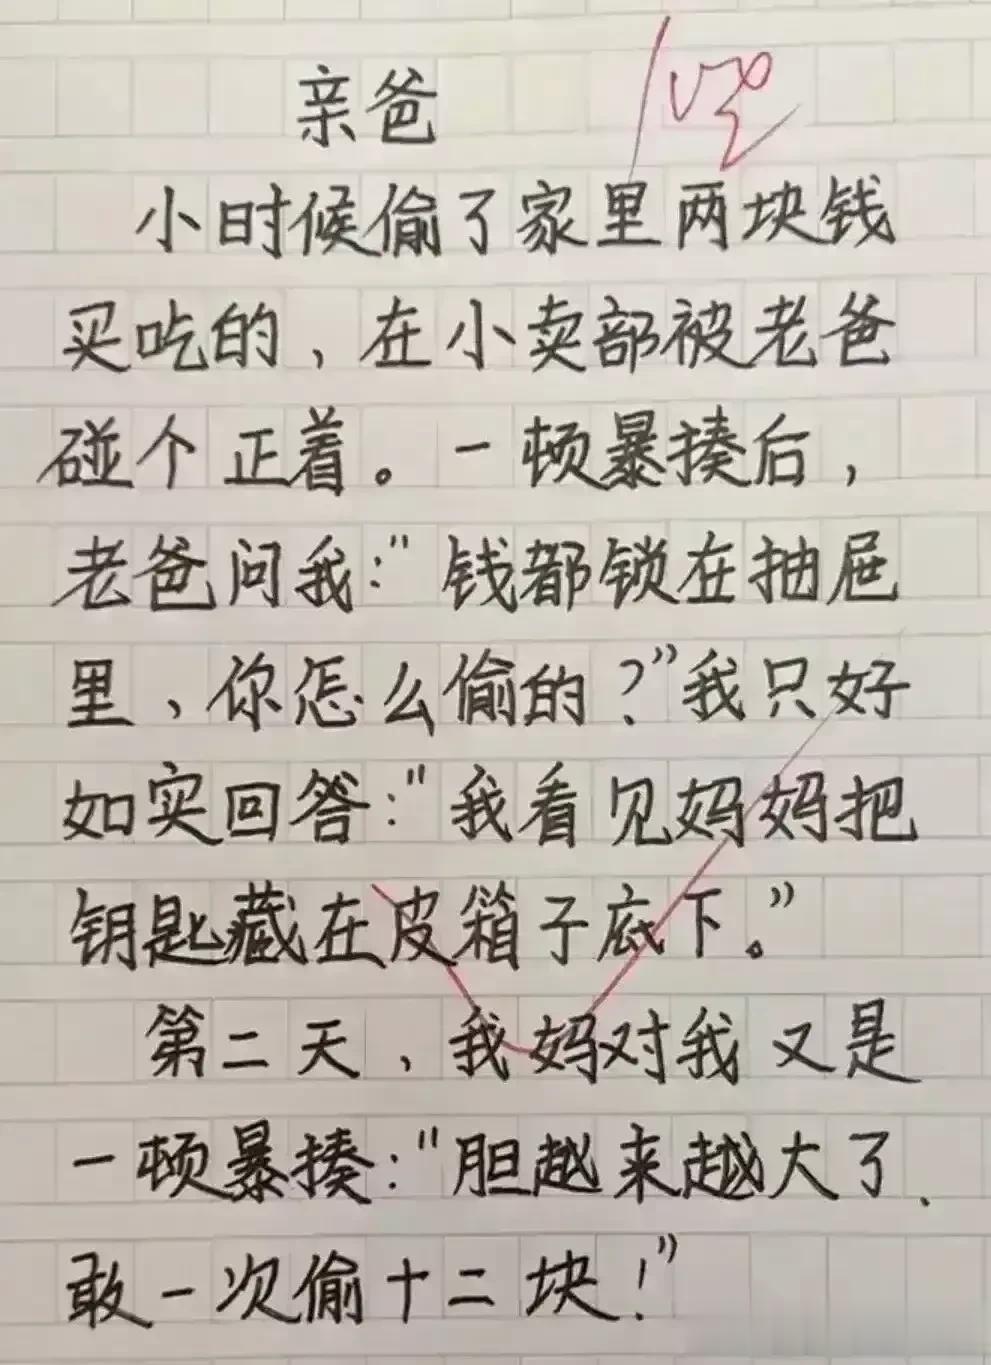 亲爸
小时候偷了家里两块钱
买吃的，在小卖部被老爸
碰个正着。一顿暴揍后，
老爸问我："钱都锁在抽屉
里，你怎么偷的？"我只好
如实回答："我看见妈妈把
钥匙藏在皮箱子底下。"
第二天，我妈对我又是
一顿暴揍："胆越来越大了，
敢一次偷十二块！"